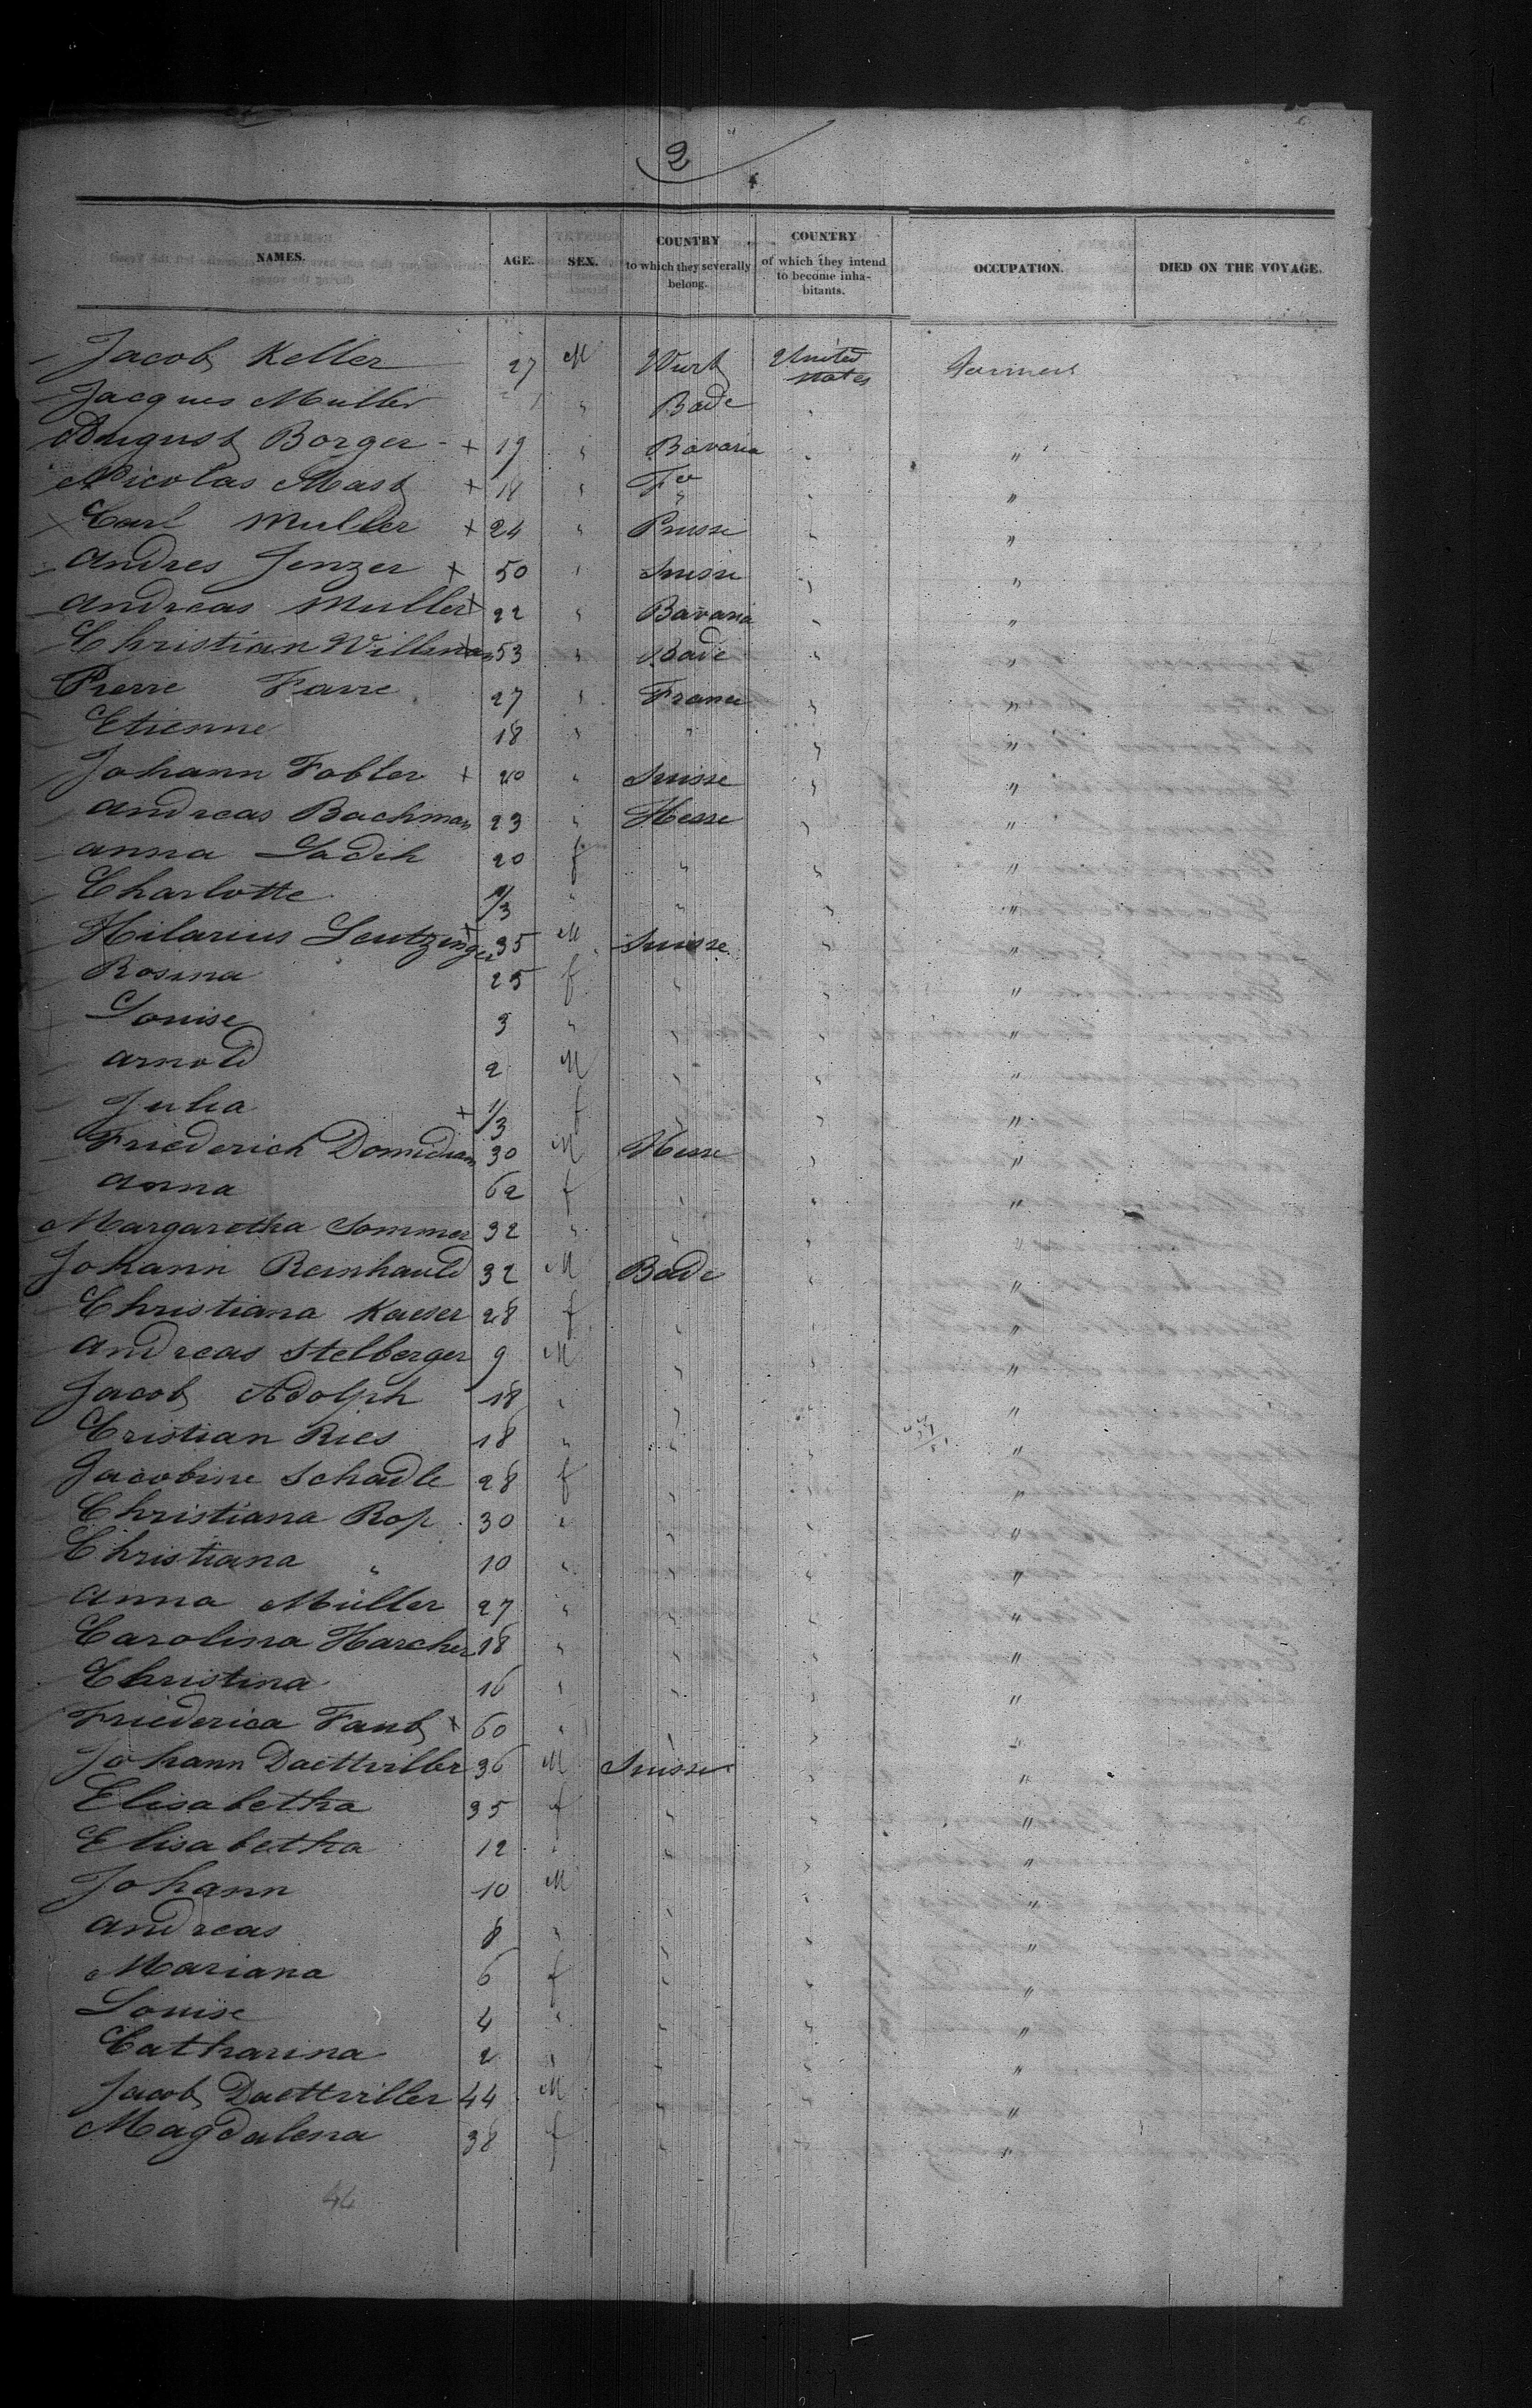 2
NAMES. AGE. SEX. COUNTRY to which they severally belong. COUNTRY of which they intend to become inhabitants. OCCUPATION. DIED ON THE VOYAGE.
Jacob Keller 27 M Wurt United states Farmers
Jacques Muller " Bade "
August Borger + 19 " Bavaria " "
Nicolas Mast + 18 " " "
Carl Muller + 24 " Prusse " "
Andres Jenzer + 50 " Suisse " "
Andreas Muller + 22 " Bavaria " "
Christian Willman 53 " Bade " "
Pierre Favre 27 " France " "
Etienne 18 " " " "
Johann Fobler + 20 " Suisse " "
Andreas Bachman 23 " Hesse " "
Anna Ladih 20 f " " "
Charlotte 1/3 " " " "
Hilarius Leutzinger 35 M Suisse " "
Rosina 25 f " " "
Louise 3 " " " "
Arnold 2 M " " "
Julia + 1/3 f " " "
Friederich 30 M Hesse " "
Anna 62 f " " "
Margaretha Sommer 32 " " " "
Johann Reinhauld 32 M Bade " "
Christiana Kaeser 28 f " " "
Andreas Stelberger 9 M " " "
Jacob Adolph 18 " " " "
Cristian Ries 18 " " " "
Jacobine Schadle 28 f " " "
Christiana Rop 30 " " " "
Christiana " 10 " " " "
Anna Müller 27 " " " "
Carolina Harcher 18 " " " "
Christina 16 " " " "
Friederica Faub + 60 " " " "
Johann Daettviller 36 M Suisse " "
Elisabetha 35 f " " "
Elisabetha 12 " " " "
Johann 10 M " " "
Andreas 8 " " " "
Mariana 6 f " " "
Louise 4 " " " "
Catharina 2 " " " "
Jacob Daettviller 44 M " " "
Magdalena 38 f " " "
44